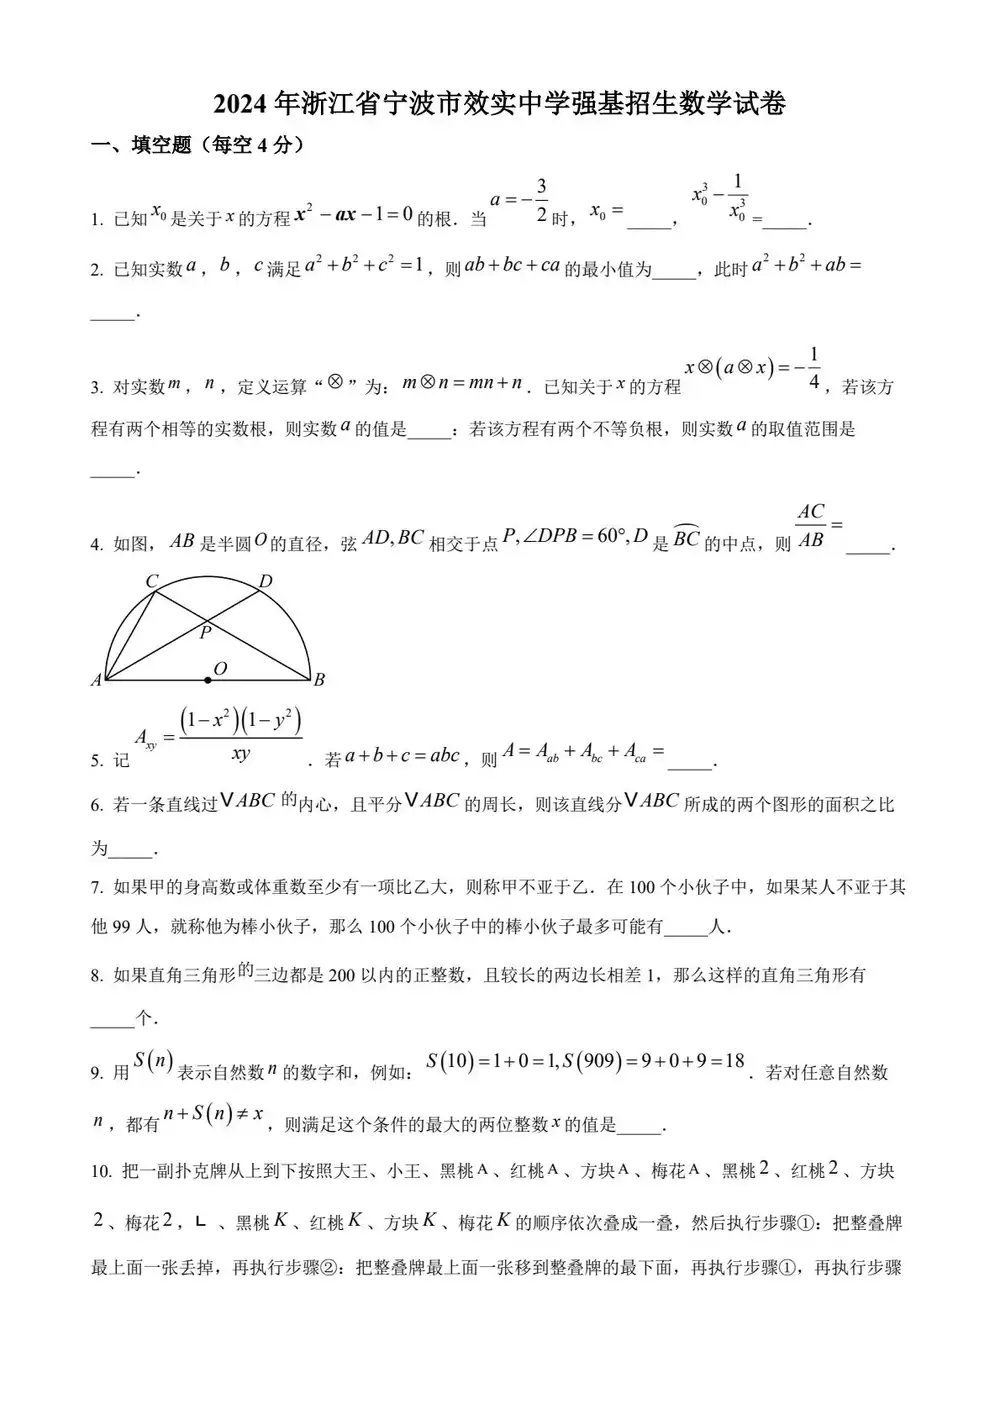 2024 年浙江省宁波市效实中学强基招生数学试卷
一、填空题（每空 4 分）
1. 已知 x₀ 是关于 x 的方程 x² − ax − 1 = 0 的根．当 a = −3/2 时，x₀ = _____，x₀³ − 1/x₀³ =_____．
2. 已知实数 a，b，c 满足 a² + b² + c² = 1，则 ab + bc + ca 的最小值为_____，此时 a² + b² + ab =
_____．
3. 对实数 m，n，定义运算“⊗”为：m ⊗ n = mn + n．已知关于 x 的方程 x ⊗ (a ⊗ x) = −1/4，若该方
程有两个相等的实数根，则实数 a 的值是_____：若该方程有两个不等负根，则实数 a 的取值范围是
_____．
4. 如图，AB 是半圆 O 的直径，弦 AD, BC 相交于点 P, ∠DPB = 60°, D 是 BC⌢ 的中点，则 AC/AB = _____．
C D
P
A O B
5. 记 A_xy = (1 − x²)(1 − y²)/xy ．若 a + b + c = abc，则 A = A_ab + A_bc + A_ca = _____．
6. 若一条直线过 VABC 的内心，且平分 VABC 的周长，则该直线分 VABC 所成的两个图形的面积之比
为_____．
7. 如果甲的身高数或体重数至少有一项比乙大，则称甲不亚于乙．在 100 个小伙子中，如果某人不亚于其
他 99 人，就称他为棒小伙子，那么 100 个小伙子中的棒小伙子最多可能有_____人．
8. 如果直角三角形的三边都是 200 以内的正整数，且较长的两边长相差 1，那么这样的直角三角形有
_____个．
9. 用 S(n) 表示自然数 n 的数字和，例如：S(10) = 1 + 0 = 1, S(909) = 9 + 0 + 9 = 18．若对任意自然数
n，都有 n + S(n) ≠ x，则满足这个条件的最大的两位整数 x 的值是_____．
10. 把一副扑克牌从上到下按照大王、小王、黑桃 A、红桃 A、方块 A、梅花 A、黑桃 2、红桃 2、方块
2、梅花 2，L 、黑桃 K、红桃 K、方块 K、梅花 K 的顺序依次叠成一叠，然后执行步骤①：把整叠牌
最上面一张丢掉，再执行步骤②：把整叠牌最上面一张移到整叠牌的最下面，再执行步骤①，再执行步骤